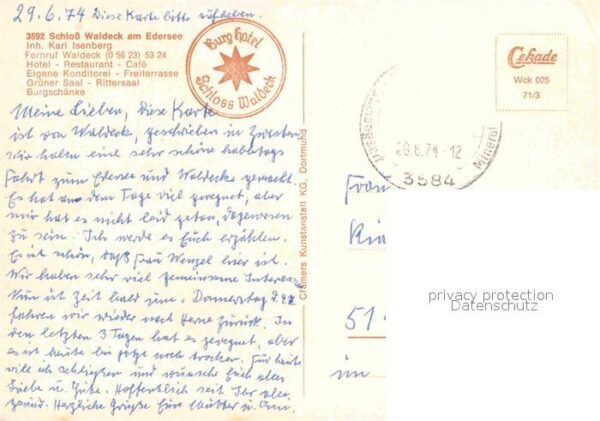 29.6.74 Diese Karte bitte aufheben.
3592 Schloß Waldeck am Edersee
Inh. Karl Isenberg
Fernruf Waldeck (0 56 23) 53 24
Hotel - Restaurant - Café
Eigene Konditorei - Freiterrasse
Grüner Saal - Rittersaal
Burgschänke
Burg Hotel
Schloss Waldeck
Cekade
Wck 025
71/3
29.6.74-12
3584
Mineral
Meine Lieben, Diese Karte
ist von Waldeck, geschrieben in Zwesten
Wir haben eine sehr schöne halbtags
Fahrt zum Edersee und Waldeck gemacht.
Es hat an dem Tage viel geregnet, aber
mir hat es nicht leid getan, dagewesen
zu sein. Ich werde es Euch erzählen.
Es ist schön, daß Frau Wenzel hier ist.
Wir haben sehr viel gemeinsame
Nun ist Zeit bald um. Donnerstag
fahren wir wieder nach Herne zurück. In
den letzten 3 Tagen hat es geregnet, aber
es ist heute bis jetzt noch trocken. Für heute
will ich schließen und wünsche Euch alles
Liebe u. Gute. Hoffentlich seit Ihr alle
gesund. Herzliche Grüße Eure Mutter u. Omi.
Cramers Kunstanstalt KG, Dortmund
Frau
51
im
privacy protection
Datenschutz